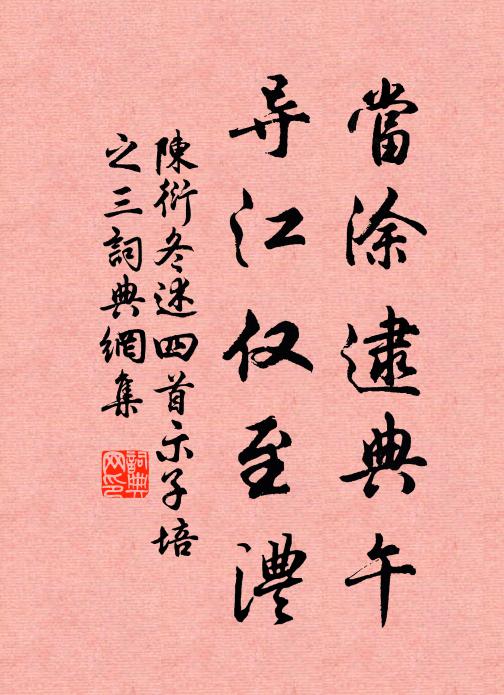 當涂逮典午
导江仅至澧
陳衍冬述四首示子培
之三詞典網集
詞典
网印